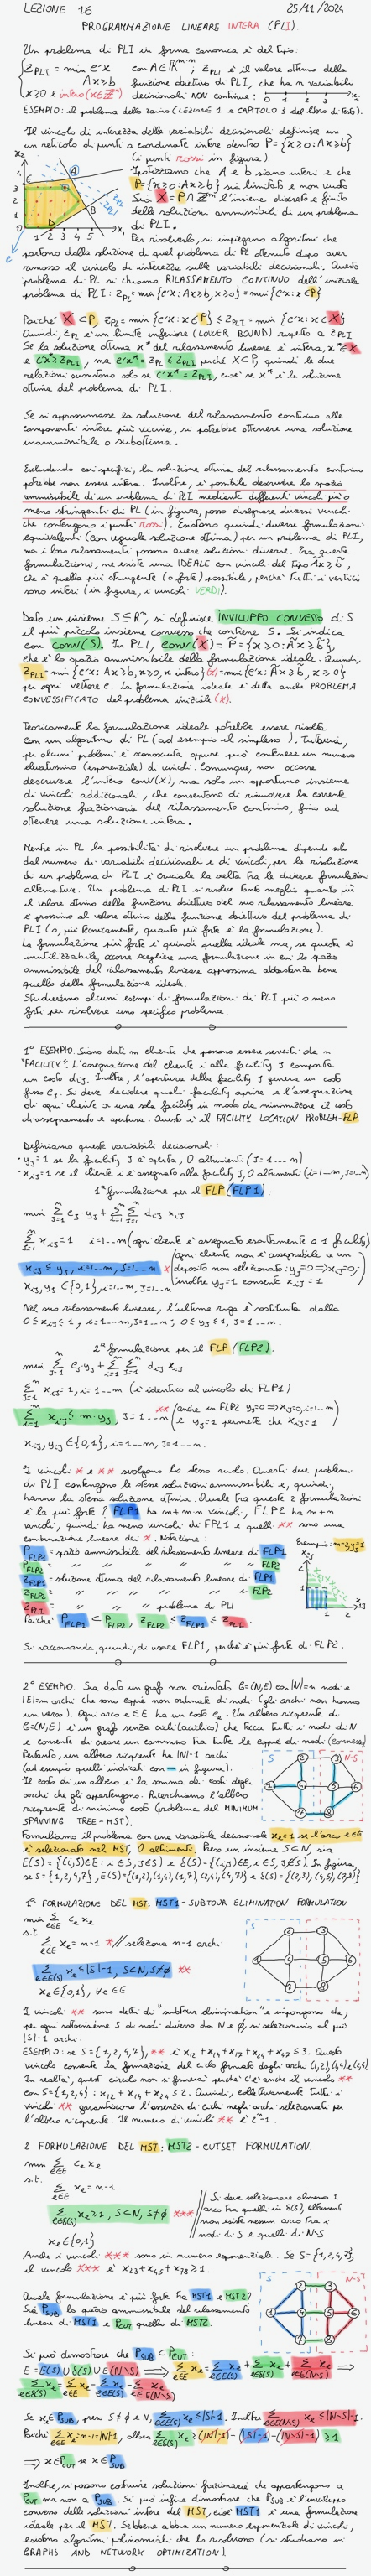 LEZIONE 16 25/11/2024
PROGRAMMAZIONE LINEARE INTERA (PLI).
Un problema di PLI in forma canonica è del tipo:
Z_PLI = min c'x con A∈ℝ^m·n; Z_PLI è il valore ottimo della
Ax≥b funzione obiettivo di PLI, che ha n variabili
x≥0 e intero (x∈ℤ^n) decisionali NON continue: 0 1 2 3 x_i
ESEMPIO: il problema dello zaino (LEZIONE 1 e CAPITOLO 3 del libro di testo).
Il vincolo di interezza delle variabili decisionali definisce un
un reticolo di punti a coordinate intere dentro P={x≥0: Ax≥b}
(i punti rossi in figura).
Ipotizziamo che A e b siano interi e che
P={x≥0: Ax≥b} sia limitato e non vuoto
Sia X=P∩ℤ^n l'insieme discreto e finito
delle soluzioni ammissibili di un problema
di PLI.
Per risolverlo, si impiegano algoritmi che
partono dalla soluzione di quel problema di PL ottenuto dopo aver
rimosso il vincolo di interezza sulle variabili decisionali. Questo
problema di PL si chiama RILASSAMENTO CONTINUO dell'iniziale
problema di PLI: Z_PL=min{c'x: Ax≥b, x≥0}=min{c'x: x∈P}
Poiché X⊂P, Z_PL=min{c'x: x∈P}≤Z_PLI=min{c'x: x∈X}
Quindi, Z_PL è un limite inferiore (LOWER BOUND) rispetto a Z_PLI
Se la soluzione ottima x* del rilassamento lineare è intera, x*∈X
e c'x*≥Z_PLI, ma c'x*=Z_PL≤Z_PLI perché X⊂P, quindi le due
relazioni sussistono solo se c'x*=Z_PLI, cioè se x* è la soluzione
ottima del problema di PLI.
Se si approssimasse la soluzione del rilassamento continuo alle
componenti intere più vicine, si potrebbe ottenere una soluzione
inammissibile o subottima.
Escludendo casi specifici, la soluzione ottima del rilassamento continuo
potrebbe non essere intera. Inoltre, è possibile descrivere lo spazio
ammissibile di un problema di PLI mediante differenti vincoli più o
meno stringenti di PL (in figura, posso disegnare diversi vincoli
che contengono i punti rossi). Esistono quindi diverse formulazioni
equivalenti (con uguale soluzione ottima) per un problema di PLI,
ma i loro rilassamenti possono avere soluzioni diverse. Tra queste
formulazioni, ne esiste una IDEALE con vincoli del tipo Ãx≥b̃,
che è quella più stringente (o forte) possibile, perché tutti i vertici
sono interi (in figura, i vincoli VERDI).
Dato un insieme S⊆ℝ^n, si definisce INVILUPPO CONVESSO di S
il più piccolo insieme convesso che contiene S. Si indica
con conv(S). In PLI, conv(X)=P̃={x≥0: Ãx≥b̃},
che è lo spazio ammissibile della formulazione ideale. Quindi,
Z_PLI=min{c'x: Ax≥b, x≥0, x intero}(*)=min{c'x: Ãx≥b̃, x≥0}
per ogni vettore c. La formulazione ideale è detta anche PROBLEMA
CONVESSIFICATO del problema iniziale (*).
Teoricamente la formulazione ideale potrebbe essere risolta
con un algoritmo di PL (ad esempio il simplesso). Tuttavia,
per alcuni problemi è sconosciuta oppure può contenere un numero
elevatissimo (esponenziale) di vincoli. Comunque, non occorre
descrivere l'intero conv(X), ma solo un opportuno insieme
di vincoli addizionali, che consentono di rimuovere la corrente
soluzione frazionaria del rilassamento continuo, fino ad
ottenere una soluzione intera.
Mentre in PL la possibilità di risolvere un problema dipende solo
dal numero di variabili decisionali e di vincoli, per la risoluzione
di un problema di PLI è cruciale la scelta tra le diverse formulazioni
alternative. Un problema di PLI si risolve tanto meglio quanto più
il valore ottimo della funzione obiettivo del suo rilassamento lineare
è prossimo al valore ottimo della funzione obiettivo del problema di
PLI (o, più tecnicamente, quanto più forte è la formulazione).
La formulazione più forte è quindi quella ideale ma, se questa è
inutilizzabile, occorre scegliere una formulazione in cui lo spazio
ammissibile del rilassamento lineare approssima abbastanza bene
quello della formulazione ideale.
Studieremo alcuni esempi di formulazioni di PLI più o meno
forti per risolvere uno specifico problema.
1° ESEMPIO. Siano dati m clienti che possono essere serviti da n
"FACILITY". L'assegnazione del cliente i alla facility J comporta
un costo d_iJ. Inoltre, l'apertura della facility J genera un costo
fisso c_J. Si deve decidere quali facility aprire e l'assegnazione
di ogni cliente a una sola facility in modo da minimizzare il costo
di assegnamento e apertura. Questo è il FACILITY LOCATION PROBLEM-FLP.
Definiamo queste variabili decisionali:
· y_J=1 se la facility J è aperta, 0 altrimenti (J=1...n)
· x_iJ=1 se il cliente i è assegnato alla facility J, 0 altrimenti (i=1...m, J=1...n)
1ª formulazione per il FLP (FLP1):
min Σ_{J=1}^n c_J·y_J + Σ_{i=1}^m Σ_{J=1}^n d_iJ x_iJ
Σ_{J=1}^n x_iJ=1 i=1...m (ogni cliente è assegnato esattamente a 1 facility)
x_iJ≤y_J, i=1...m, J=1...n * (ogni cliente non è assegnabile a un
deposito non selezionato: y_J=0⟹x_iJ=0;
inoltre y_J=1 consente x_iJ=1
x_iJ, y_J∈{0,1}, i=1...m, J=1...n
Nel suo rilassamento lineare, l'ultima riga è sostituita dalla
0≤x_iJ≤1, i=1...m, J=1...n; 0≤y_J≤1, J=1...n.
2ª formulazione per il FLP (FLP2):
min Σ_{J=1}^n c_J·y_J + Σ_{i=1}^m Σ_{J=1}^n d_iJ x_iJ
Σ_{J=1}^n x_iJ=1, i=1...m (è identico al vincolo di FLP1)
Σ_{i=1}^m x_iJ≤m·y_J, J=1...n ** (anche in FLP2 y_J=0⟹x_iJ=0, i=1...m
e y_J=1 permette che x_iJ=1
x_iJ, y_J∈{0,1}, i=1...m, J=1...n.
I vincoli * e ** svolgono lo stesso ruolo. Questi due problemi
di PLI contengono le stesse soluzioni ammissibili e, quindi,
hanno la stessa soluzione ottima. Quale tra queste 2 formulazioni
è la più forte? FLP1 ha m+m·n vincoli, FLP2 ha m+n
vincoli, quindi ha meno vincoli di FPL1 e quelli ** sono una
combinazione lineare dei *. Notazione:
Esempio: m=2, y_J=1
P_FLP1 = spazio ammissibile del rilassamento lineare di FLP1
P_FLP2 = " " " " " FLP2
Z_FLP1 = soluzione ottima del rilassamento lineare di FLP1
Z_FLP2 = " " " " " FLP2
Z_PLI = " " " problema di PLI
Poiché P_FLP1⊂P_FLP2, Z_FLP2≤Z_FLP1≤Z_PLI.
Si raccomanda, quindi, di usare FLP1, perché è più forte di FLP2.
2° ESEMPIO. Sia dato un grafo non orientato G=(N,E) con |N|=n nodi e
|E|=m archi che sono coppie non ordinate di nodi (gli archi non hanno
un verso). Ogni arco e∈E ha un costo c_e. Un albero ricoprente di
G=(N,E) è un grafo senza cicli (aciclico) che tocca tutti i nodi di N
e consente di creare un cammino fra tutte le coppie di nodi (connesso)
Pertanto, un albero ricoprente ha |N|-1 archi
(ad esempio quelli indicati con — in figura).
Il costo di un albero è la somma dei costi degli
archi che gli appartengono. Ricerchiamo l'albero
ricoprente di minimo costo (problema del MINIMUM
SPANNING TREE-MST).
Formuliamo il problema con una variabile decisionale x_e=1 se l'arco e∈E
è selezionato nel MST, 0 altrimenti. Preso un insieme S⊂N, sia
E(S)={(i,J)∈E: i∈S, J∈S} e δ(S)={(i,J)∈E, i∈S, J∉S}. In figura,
se S={1,2,4,7}, E(S)={(1,2),(1,4),(1,7),(2,4),(4,7)} e δ(S)={(2,3),(4,5),(7,8)}
1ª FORMULAZIONE DEL MST: MST1-SUBTOUR ELIMINATION FORMULATION
min Σ_{e∈E} c_e x_e
s.t.
Σ_{e∈E} x_e=n-1 * // seleziona n-1 archi
Σ_{e∈E(S)} x_e≤|S|-1, S⊂N, S≠∅ **
x_e∈{0,1}, ∀e∈E
I vincoli ** sono detti di "subtour elimination" e impongono che,
per ogni sottoinsieme S di nodi diverso da N e ∅, si selezionino al più
|S|-1 archi.
ESEMPIO: se S={1,2,4,7}, ** è x_12+x_14+x_17+x_24+x_47≤3. Questo
vincolo consente la formazione del ciclo formato dagli archi (1,2),(1,4) e (2,4)
In realtà, questo circolo non si formerà perché c'è anche il vincolo **
con S={1,2,4}: x_12+x_14+x_24≤2. Quindi, collettivamente tutti i
vincoli ** garantiscono l'assenza di cicli negli archi selezionati per
l'albero ricoprente. Il numero di vincoli ** è 2^n-1.
2 FORMULAZIONE DEL MST: MST2-CUTSET FORMULATION.
min Σ_{e∈E} c_e x_e
s.t.
Σ_{e∈E} x_e=n-1
Σ_{e∈δ(S)} x_e≥1, S⊂N, S≠∅ *** // Si deve selezionare almeno 1
arco tra quelli in δ(S), altrimenti
non esiste nessun arco tra i
nodi di S e quelli di N∖S
x_e∈{0,1}
Anche i vincoli *** sono in numero esponenziale. Se S={1,2,4,7},
il vincolo *** è x_23+x_45+x_78≥1.
Quale formulazione è più forte tra MST1 e MST2?
Sia P_SUB lo spazio ammissibile del rilassamento
lineare di MST1 e P_CUT quello di MST2.
Si può dimostrare che P_SUB⊂P_CUT:
E=E(S)∪δ(S)∪E(N∖S)⟹Σ_{e∈E} x_e=Σ_{e∈E(S)} x_e+Σ_{e∈δ(S)} x_e+Σ_{e∈E(N∖S)} x_e⟹
Σ_{e∈δ(S)} x_e=Σ_{e∈E} x_e-Σ_{e∈E(S)} x_e-Σ_{e∈E(N∖S)} x_e
Se x∈P_SUB, preso S≠∅ e N, Σ_{e∈E(S)} x_e≤|S|-1. Inoltre Σ_{e∈E(N∖S)} x_e≤|N∖S|-1.
Poiché Σ_{e∈E} x_e=n-1=|N|-1, allora Σ_{e∈δ(S)} x_e≥(|N|-1)-(|S|-1)-(|N∖S|-1)≥1
⟹x∈P_CUT se x∈P_SUB
Inoltre, si possono costruire soluzioni frazionarie che appartengono a
P_CUT ma non a P_SUB. Si può infine dimostrare che P_SUB è l'inviluppo
convesso delle soluzioni intere del MST, cioè MST1 è una formulazione
ideale per il MST. Sebbene abbia un numero esponenziale di vincoli,
esistono algoritmi polinomiali che lo risolvono (si studiano in
GRAPHS AND NETWORK OPTIMIZATION).